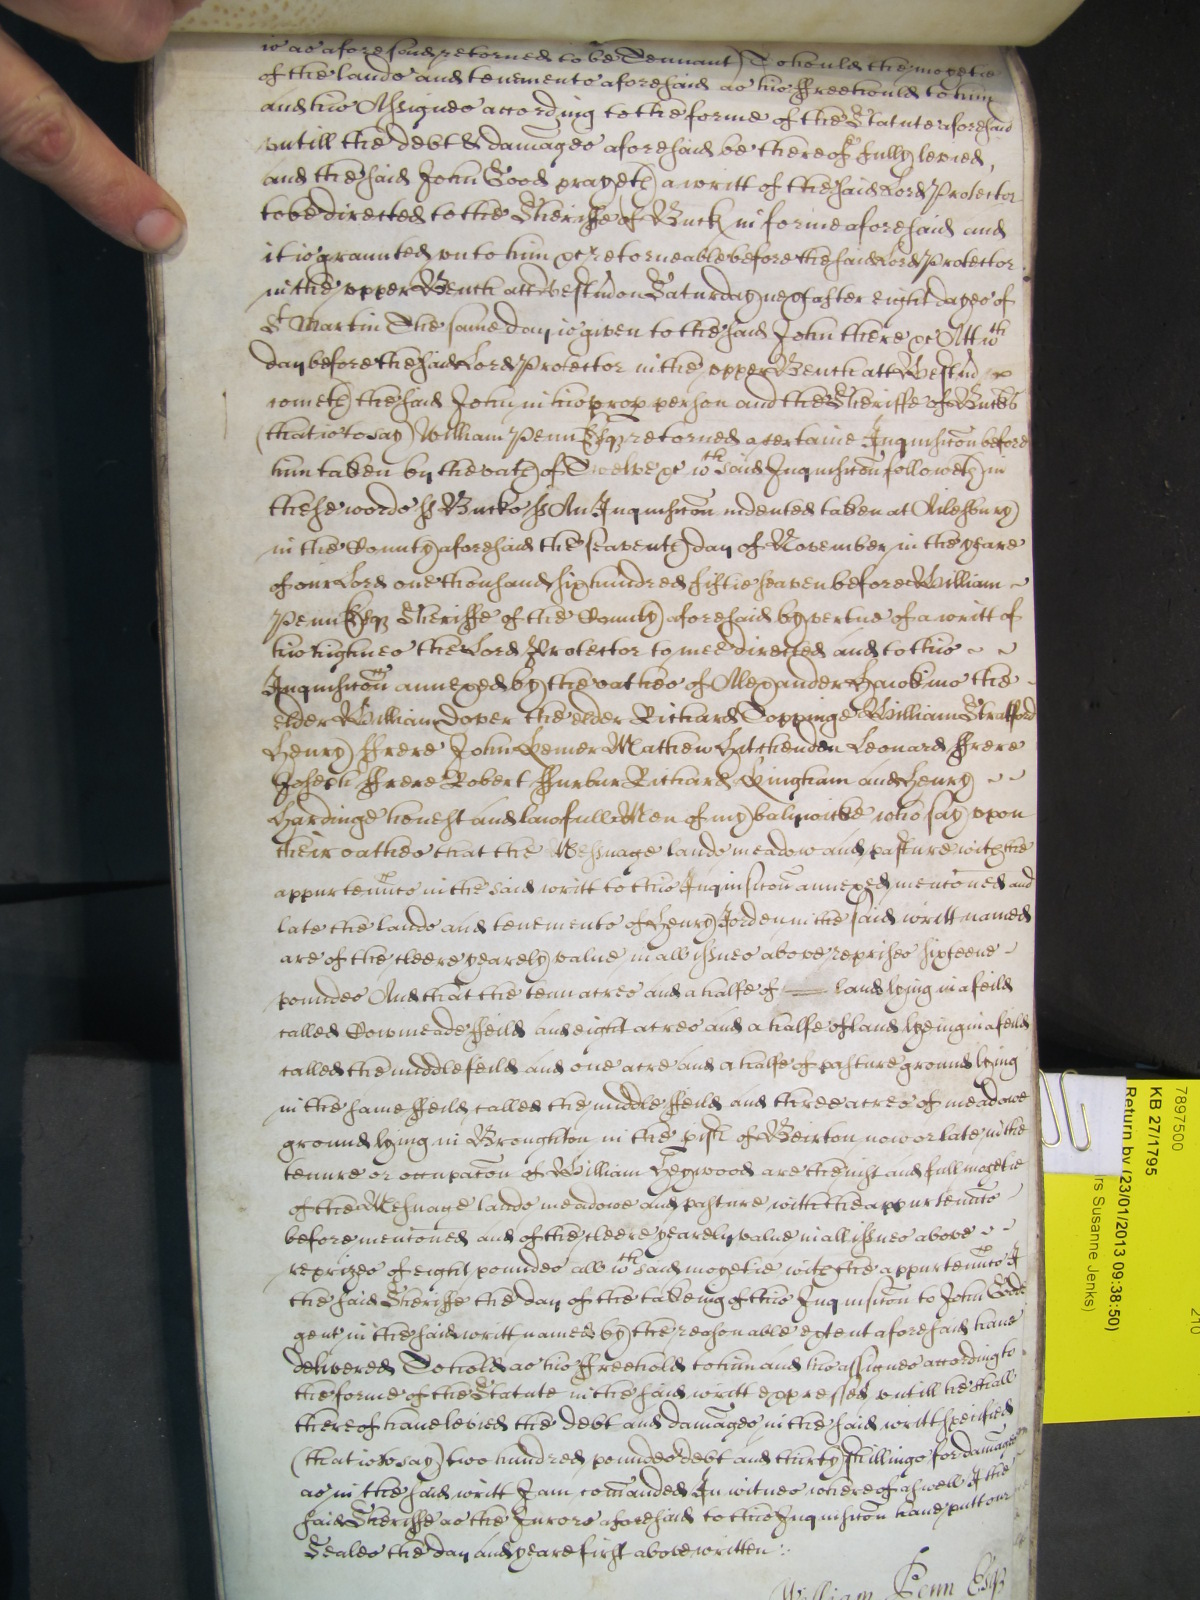 is as aforesaid retorned to be Tennant) To hould the moyetie
of the lands and tenements aforesaid as his ffreehould to him
and his Assignes according to the forme of the Statute aforesaid
untill the debt & damages aforesaid be thereof fully levied,
and the said John Good prayeth a writt of the said Lord Protector
to be directed to the Sheriffe of Buck in forme aforesaid and
it is graunted unto him &c retorneable before the said Lord Protector
in the upper Bench att Westm on Saturday next after eight dayes of
St Martin The same day is given to the said John there &c Att wth
day before the said Lord Protector in the upper Bench att Westm
cometh the said John in his prop person and the Sheriffe of Bucks
(that is to say) William Penn Esqr retorned a certaine Inquisicon before
him taken by the oath of Twelve &c wth said Inquisicon followeth in
these words ss Bucks ss An Inquisicon indented taken at Ailesbury
in the County aforesaid the seaventh day of November in the yeare
of our Lord one thousand six hundred fiftie seaven before William
Penn Esqr Sheriffe of the County aforesaid by vertue of a writt of
his highnes the Lord Protector to mee directed and to this
Inquisicon annexed by the oathes of Alexander Hawkins the
elder William Dover the elder Richard Toppinge William Stratford
Henry ffrere John Hemer Mathew Hitchenden Leonard ffrere
Joseph ffrere Robert ffurbur Richard Kingham and Henry
Hardinge honest and lawfull Men of my baliwicke who say upon
their oathes that the Messuage lands meadow and pasture with the
appurtennts in the said writt to this Inquisicon annexed mentoned and
late the lands and tenements of Henry Jorden in the said writt named
are of the cleere yearely value in all issues above reprises sixteene
poundes And that the tenn acres and a halfe of — land lying in a feild
called Cowmeade ffeild and eight acres and a halfe of land lyeing in a feild
called the middle feild and one acre and a halfe of pasture ground lying
in the same ffeild called the middle ffeild and three acres of meadowe
ground lying in Broughton in the pish of Beirton now or late in the
tenure or occupacon of William Heywood are the just and full moyetie
of the Messuage lands meadowe and pasture with the appurtennts
before mentoned and of the cleere yearely value in all issues above
reprizes of eight poundes all wth said moyetie with the appurtennts I
the said Sheriffe the day of the takeing of this Inquisicon to John Good
gent in the said writt named by the reasonable extent aforesaid have
delivered To hold as his ffreehold to him and his assignes according to
the forme of the Statute in the said writt expressed untill he shall
thereof have levied the debt and damages in the said writt specified
(that is to say) two hundred poundes debt and thirty shillings for damages
as in the said writt I am comanded In witnes whereof aswell I the
said Sheriffe as the Jurors aforesaid to this Inquisicon have putt our
Seales the day and yeare first above written
William Penn Esqr
7897500
KB 27/1795
Return by (23/01/2013 09:38:50)
rs Susanne Jenks)
210